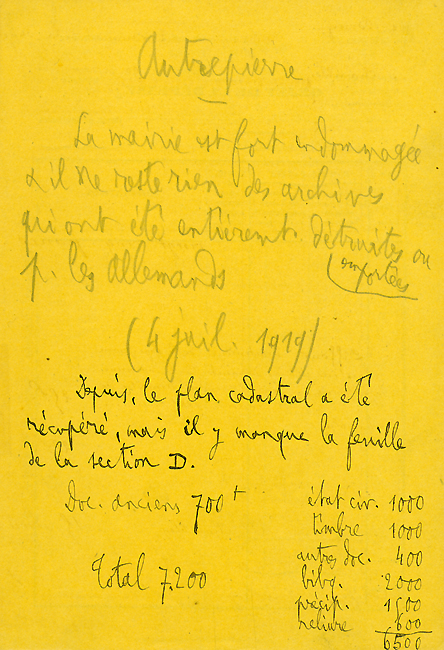 Autrepierre
La mairie est fort endommagée
& il ne reste rien des archives
qui ont été entièremt. détruites ou
emportées
p. les Allemands
(4 juil. 1919)
Depuis, le plan cadastral a été
récupéré, mais il y manque la feuille
de la section D.
Doc. anciens 700+
état civ. 1000
timbre 1000
autres doc. 400
Total 7.200
bibl. 2000
précip. 1500
reliure 600
6500